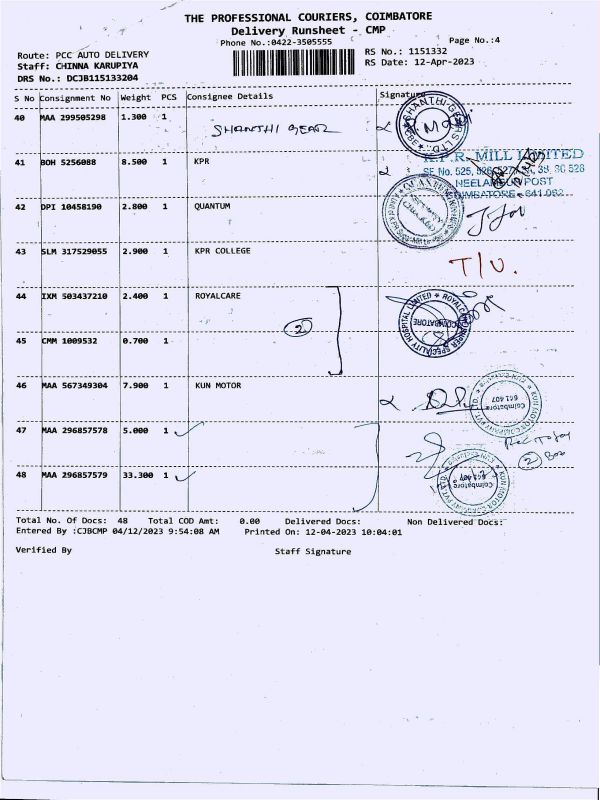 THE PROFESSIONAL COURIERS, COIMBATORE
Delivery Runsheet - CMP
Phone No.:0422-3505555 Page No.:4
Route: PCC AUTO DELIVERY RS No.: 1151332
Staff: CHINNA KARUPIYA RS Date: 12-Apr-2023
DRS No.: DCJB115133204
S No Consignment No Weight PCS Consignee Details Signature
40 MAA 299505298 1.300 1 SHANTHI GEAR
41 BOH 5256088 8.500 1 KPR
K.P.R. MILL LIMITED
NEELAMBUR POST
COIMBATORE - 641 062
42 DPI 10458190 2.800 1 QUANTUM
43 SLM 317529055 2.900 1 KPR COLLEGE T/U.
44 IXM 503437210 2.400 1 ROYALCARE
2
45 CMM 1009532 0.700 1
46 MAA 567349304 7.900 1 KUN MOTOR
Coimbatore
641 407
47 MAA 296857578 5.000 1
2 Box
48 MAA 296857579 33.300 1
Coimbatore
641 407
Total No. Of Docs: 48 Total COD Amt: 0.00 Delivered Docs: Non Delivered Docs:
Entered By :CJBCMP 04/12/2023 9:54:08 AM Printed On: 12-04-2023 10:04:01
Verified By Staff Signature